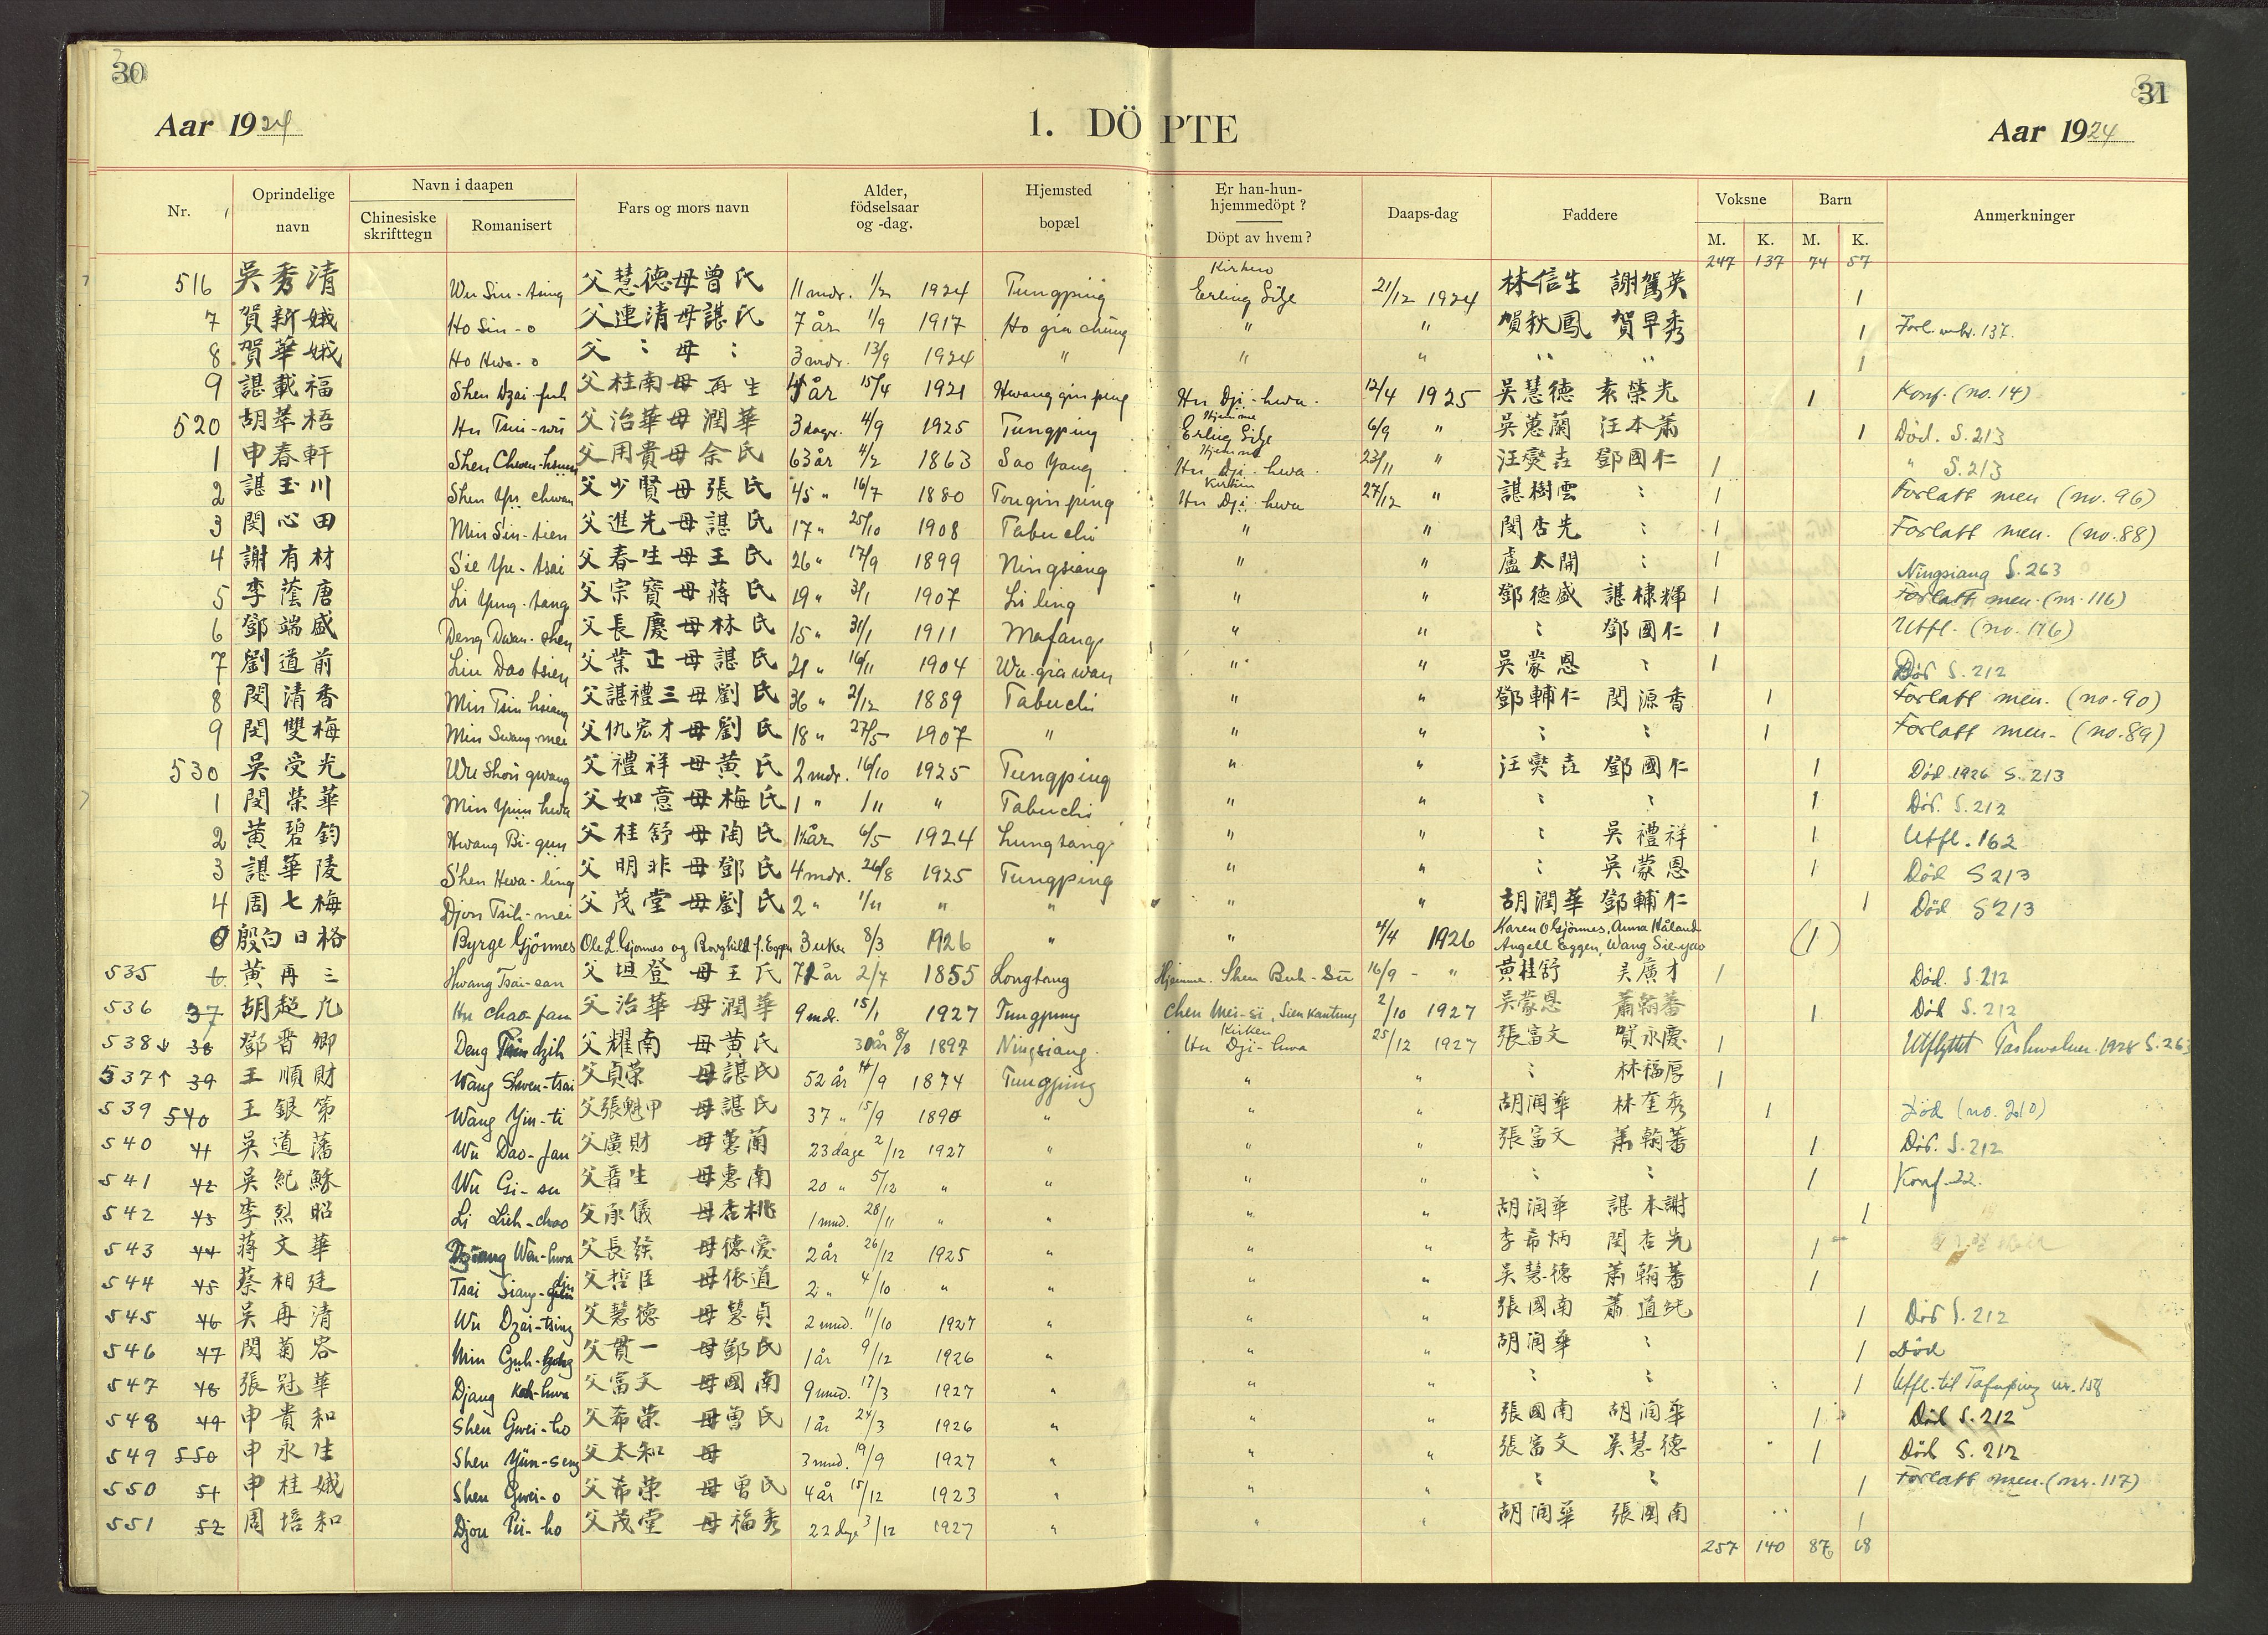 30
31
Aar 1924
1. DÖPTE
Aar 1924
Nr. Oprindelige navn Navn i daapen Chinesiske skrifttegn Romanisert Fars og mors navn Alder, födselsaar og -dag. Hjemsted bopæl Er han-hun- hjemmedöpt ? Döpt av hvem ? Daaps-dag Faddere Voksne M. K. Barn M. K. Anmerkninger
247 137 74 57
516 吳秀清 Wu Siu-tsing 父慧德母曾氏 11 mdr. 1/2 1924 Tungping Kirken Erling Gilje 21/12 1924 林信生 謝駕英 1
7 賀新娥 Ho Sin-o 父連清母諶氏 7 år 1/9 1917 Ho gia chung " " 賀秋鳳 賀早秀 1 Forl. nr. 137.
8 賀華娥 Ho Hwa-o 父 : 母 : 3 mdr. 13/9 1924 " " " " " 1
9 諶載福 Shen Dzai-fuh 父桂南母再生 4 år 15/4 1921 Hwang gin ping Hu Dji-hwa. 12/4 1925 吳慧德 袁榮光 1 Konf. (no. 14)
520 胡萃梧 Hu Tsui-wu 父治華母潤華 3 dager. 4/9 1925 Tungping Hjemme Erling Gilje 6/9 " 吳蕙蘭 汪本蕭 1 Död. S. 213
1 申春軒 Shen Chwen-hsuen 父用貴母余氏 63 år 4/2 1863 Sao Yang Hjemme Hu Dji-hwa. 23/11 " 汪爕垚 鄧國仁 1 " S. 213
2 諶玉川 Shen Yu chwan 父少賢母張氏 45 " 16/7 1880 Tougin ping Kirken Hu Dji-hwa 27/12 " 諶樹雲 : 1 Forlatt men (no. 96)
3 閔心田 Min Sin-tien 父進先母諶氏 17 " 25/10 1908 Tabuchi " " 閔杏先 : 1 Forlatt men. (no. 88)
4 謝有材 Sie Yu-tsai 父春生母王氏 26 " 17/9 1899 Ningsiang " " 盧太開 : 1 Ningsiang S. 263
5 李蔭唐 Li Yung-tang 父宗寶母蔣氏 19 " 3/1 1907 Li ling " " 鄧德盛 諶棣輝 1 Forlatt men. (nr. 116)
6 鄧端盛 Deng Dwan-shen 父長慶母林氏 15 " 31/1 1911 Mafang " " : 鄧國仁 1 Utfl. (no. 176)
7 劉道前 Liu Dao tsien 父業正母諶氏 21 " 16/11 1904 Wu gia wan " " 吳蒙恩 : 1 Död S. 212
8 閔清香 Min Tsin hsiang 父諶禮三母劉氏 36 " 2/12 1889 Tabuchi " " 鄧輔仁 閔源香 1 Forlatt men. (no. 90)
9 閔雙梅 Min Swang-mei 父仇宏才母劉氏 18 " 27/5 1907 " " " : : 1 Forlatt men. (no. 89)
530 吳受光 Wu Shou gwang 父禮祥母黃氏 2 mdr. 16/10 1925 Tungping " " 汪爕垚 鄧國仁 1 Död 1926 S. 213
1 閔榮華 Min Yuin hwa 父如意母梅氏 1 " 1/11 " Tabuchi " " : : 1 Död. S. 212
2 黃碧鈞 Hwang Bi-gun 父桂舒母陶氏 1½ år 6/5 1924 Lungtang " " : 吳禮祥 1 Utfl. 162
3 諶華陵 Shen Hwa-ling 父明非母鄧氏 4 mdr. 26/8 1925 Tungping " " : 吳蒙恩 1 Död S 213
4 周七梅 Djou Tsih-mei 父茂堂母劉氏 2 " 1/11 " " " " 胡潤華 鄧輔仁 1 Död S 213
殷向日格 Byrge Gjönnes Ole L. Gjönnes og Borghild f. Eggen 3 uker 8/3 1926 " " 4/4 1926 Karen O Gjönnes, Anna Håland Angell Eggen, Wang Sie-yao (1)
535 6 黃再三 Hwang Tsai-san 父坦登母王氏 71 år 2/7 1855 Longtang Hjemme. Shen Buh-Su 16/9 - " 黃桂舒 吳廣才 1 Död. S. 212
536 37 胡超凡 Hu Chao-fan 父治華母潤華 9 md. 15/1 1927 Tungping Chen Wei-si, Sien Kantung 2/10 1927 吳蒙恩 蕭翰蕃 1 Död S. 212
538↓ 38 鄧晋卿 Deng Tsin dzih 父耀南母黃氏 30 år 8/8 1897 Ningsiang. Kirken Hu Dji-hwa 25/12 1927 張富文 賀永慶 1 Utflyttet Taohwalun. 1928 S. 263
537↑ 39 王順財 Wang Shwen-tsai 父貞榮母諶氏 52 år 14/9 1874 Tungping " " : 林福厚 1
539 540 王銀第 Wang Yin-ti 父張魁甲母諶氏 37 " 15/9 1890 " " " 胡润華 林奎秀 1 Död (no. 210)
540 41 吳道藩 Wu Dao-fan 父廣財母蕙蘭 23 dage 2/12 1927 " " " 張富文 蕭翰蕃 1 Död. S. 212
541 42 吳紀穌 Wu Gi-su 父普生母惠南 20 " 5/12 " " " " : : 1 Konf. 22.
542 43 李烈昭 Li Lieh-chao 父承儀母杏桃 1 mnd. 28/11 " " " " 胡润華 諶本謝 1
543 44 蔣文華 Dziang Wen-hwa 父長發母德愛 2 år 26/12 1925 " " " 李希炳 閔杏先 1
544 45 蔡相廷 Tsai Siang-din 父哲臣母依道 2 " 4/10 " " " " 吳慧德 蕭翰蕃 1
545 46 吳再清 Wu Dzai-tsing 父慧德母慧貞 2 mnd. 11/10 1927 " " " 張國南 蕭道純 1 Död S. 212
546 47 閔菊容 Min Güh-yong 父貫一母鄧氏 1 år 9/12 1926 " " " 胡润華 : 1 Död
547 48 張冠華 Djang Koh-hwa 父富文母國南 9 mnd. 17/3 1927 " " " : : 1 Utfl. til Tafuping nr. 158
548 49 申貴和 Shen Gwei-ho 父希榮母曾氏 1 år 24/3 1926 " " " 張國南 胡润華 1 Död S. 212
549 550 申永生 Shen Yün-seng 父太和母 3 mnd. 19/9 1927 " " " 張富文 吳慧德 1 Död S. 212
550 51 申桂娥 Shen Gwei-o 父希榮母曾氏 4 år 15/12 1923 " " " : : 1 Forlatt men. (nr. 117)
551 52 周培和 Djou Pei-ho 父茂堂母福秀 22 dage 3/12 1927 " " " 胡润華 張國南 1
257 140 87 68